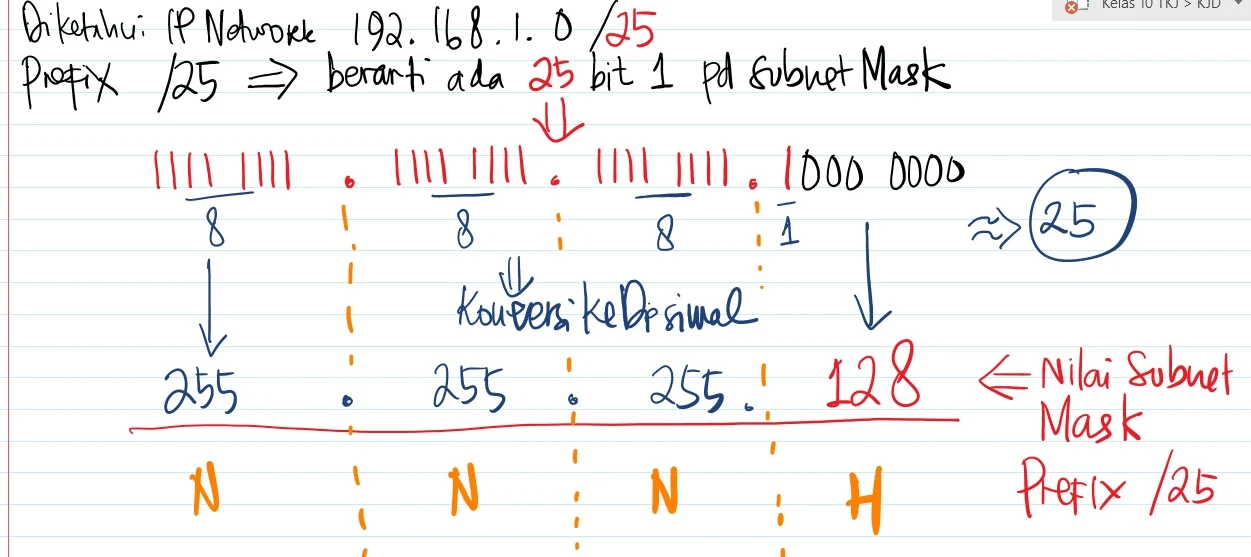 Kelas 10 TKJ > KJD
Diketahui: IP Network 192.168.1.0 /25
Prefix /25 ⇒ berarti ada 25 bit 1 pd Subnet Mask
⇓
1111 1111 . 1111 1111 . 1111 1111 . 1000 0000
8 8 8 1 ≈> 25
⇓
Konversi ke Desimal
255 . 255 . 255 . 128 ⇐ Nilai Subnet
Mask
N N N H Prefix /25